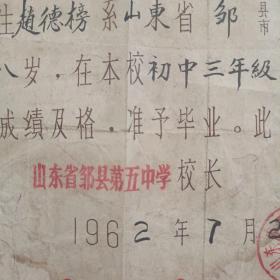 生趙德榜系山東省鄒县市
八岁，在本校初中三年級
成績及格，准予毕业。此
山东省邹县第五中学校长
1962年7月2